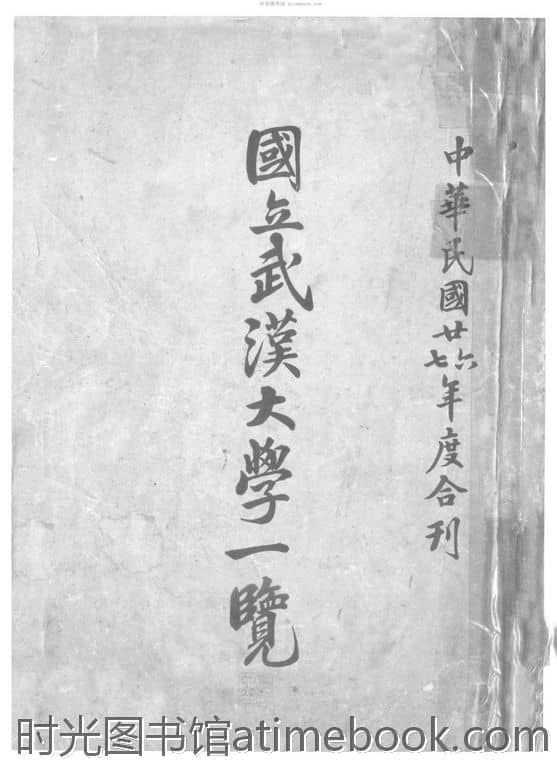 时光图书馆 atimebook.com
中華民國廿六七年度合刊
國立武漢大學一覽
时光图书馆atimebook.com